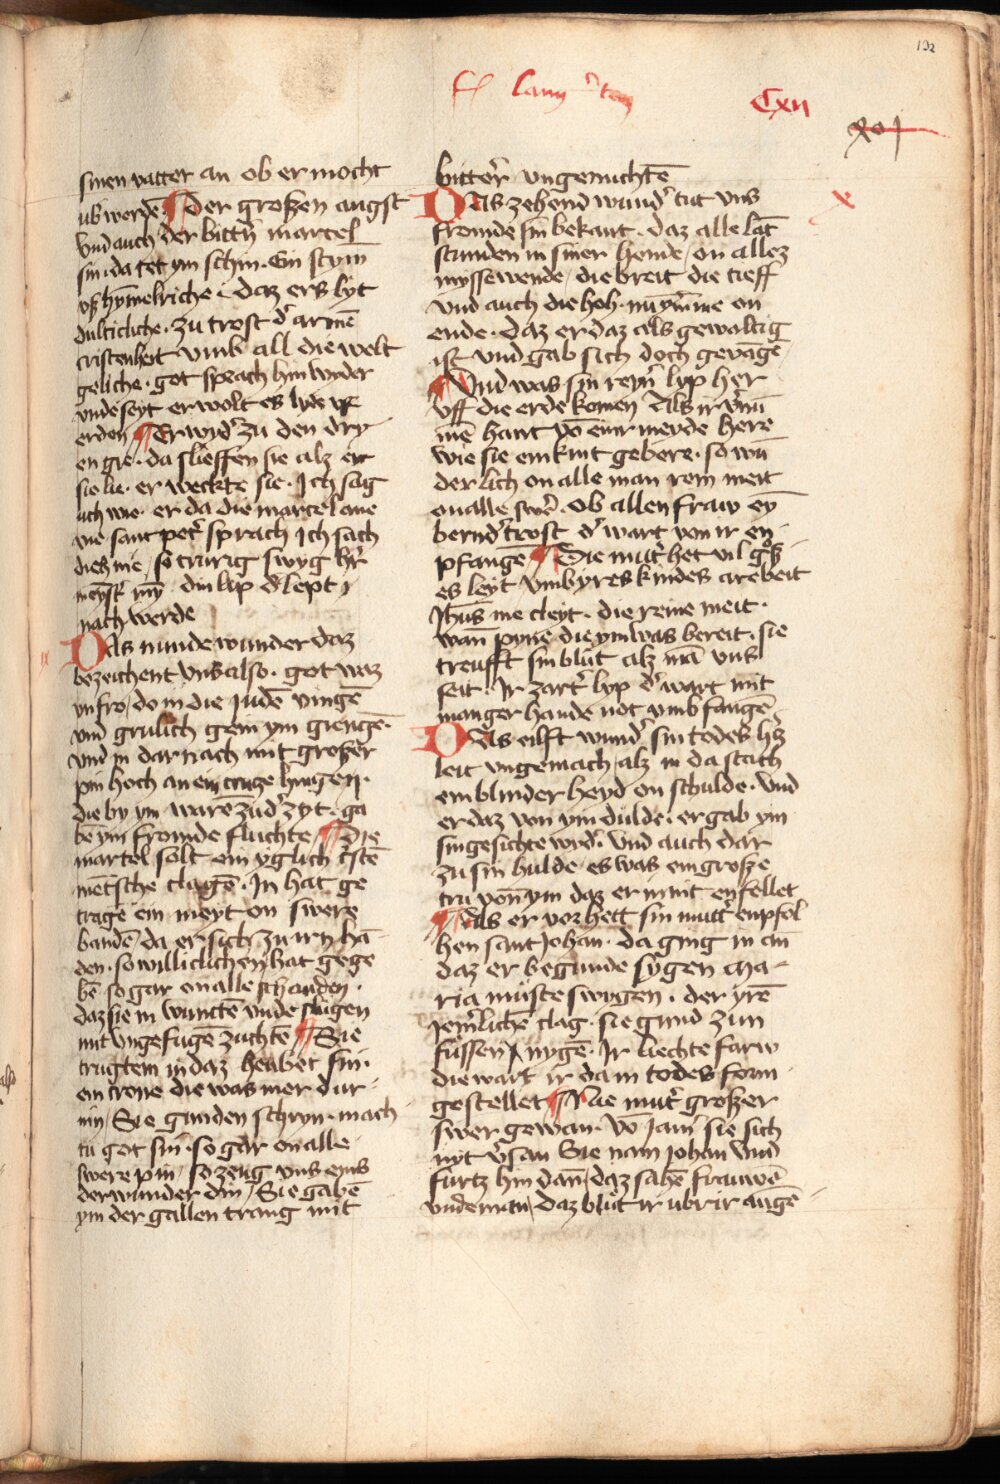 132
Cxii
xvj
sinen vatter an ob er mocht
ub werdē ¶ Der großen angst
Vnd auch der bittn̄ martel
sin da tet ym schin. Ein stym
vß hymelriche. daz ers lyt
dulticliche. zu trost d' armē
cristenheit vmb all die welt
geliche. got sprach hin wyder
vnde seyt er wolt es lyde vf
erden ¶ Er wyd' zu den dry
en gie. da slieffen sie alz er
sie lie. er weckte sie. Ich sag
uch wie. er da die martel ane
vie sant pet' sprach ich sach
dich nie, so trurig swyg h'r
meyst' my din lip d' lept
nach werde
ix
DAs nunde wunder daz
bezeichent vns also. got waz
vnfro, do in die Judē vingē
vnd grulich gein ym giengē.
vnd in dar nach mit großer
pin hoch an ein crutze hingen.
die by ym warē zu d' zyt. ga
bē ym fromde fluchte ¶ Die
martel solt ein yglich cristē
mētsche clagē. In hat ge
tragē ein meyt on swere
bandē, da er sich zu irn hā
den. so williclichen hat gege
bē so gar on alle schanden.
daz sie in wunctē vnde slugen
mit vngefugē zuchtē ¶ Sie
trugtem in daz heubet sin.
ein crone die was mer dur
nin, Sie gunden schryn. mach
tu got sin. so gar on alle
swere pin, so zeug vns eins
der wunder din, Sie gabē
ym der gallen trang mit
bitter' vngemuchtē
x
DAs zehend wund' tut vns
fromde sin bekant. daz alle lāt
stunden in siner hende, on allez
myssewende, die breit die tieff
vnd auch die hoh. nūmme on
ende. daz er daz als gewaltig
ist vnd gab sich doch gevāgē,
¶ Vnd was sin reyn' lyp her
vff die erde komen Als ir v'nū
mē hant vō einr meyde here
wie sie ein kint gebere. so wū
derlich on alle man rein meit
on alle swer'. ob allen fraw ey
bernd' trost d' wart von ir en
pfangē ¶ Die mut' het vil groß
es leyt vmb yres kindes arebeit
Jhūs me cleyt. die reine meit.
wan pyne die ym was bereit. sie
treufft sin blut alz mā vns
seit. Ir zart' lyp d' wart mit
manger hande not vmbfangē
DAs eilft wund' sin todes hß
leit vngemach, alz in da stach
ein blinder heyd on schulde. Vnd
er daz von ym dulde. er gab ym
sin gesichte wyd'. Vnd auch dar
zu sin hulde. es was ein große
tru von ym daz er in nit enfellet
¶ Als er vor hett sin mutt' enpfol
hen sant Johan. da ging in an
daz er begunde sygen Ma
ria muste swigen. der yrē
iem'lichē clag. sie gund zun
füssen nygē. Ir liechte farw
die wart ir da in todes form
gestellet ¶ Die mut' großer
swer gewan. vō Jam' sie sich
nyt v'san Sie nam Johan vnd
furtz hin dan, daz sahē frauwē
vnde man, daz blut ir ubr ir augē